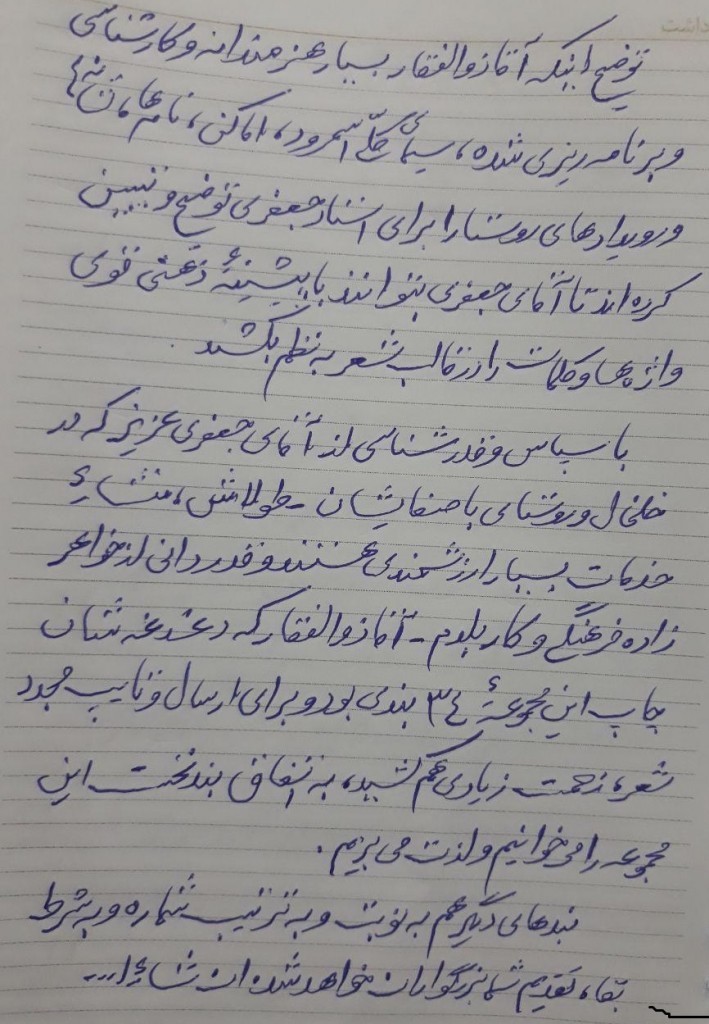 توضیح اینکه آقا ذوالفقار بسیار هنرمندانه و کارشناسی
و برنامه ریزی شده، سیمای کلّی اسمرود، اماکن، نام‌ها،
و رویدادهای روستا را برای استاد جعفری توضیح و تبیین
کرده اند تا آقای جعفری بتوانند با پیشینهٔ ذهنی قوی
واژه‌ها و کلمات را در قالب شعر به نظم بکشد.
با سپاس و قدرشناسی از آقای جعفری عزیز که در
خلخال و روستای باصفایشان - طولاش، منشاءِ
خدمات بسیار ارزشمندی هستند و قدردانی از خواهر
زاده فرهنگی و کاربلدم - آقا ذوالفقار که دغدغه شان
چاپ این مجموعهٔ ۳۴ بندی بود و برای ارسال و تایپ مجدد
شعر، زحمت زیادی هم کشید، به اتفاق بند نخست این
مجموعه را می‌خوانیم و لذت می‌بریم.
بندهای دیگر هم به نوبت و به ترتیب شماره و به شرط
بقا، تقدیم شما بزرگواران خواهد شد ان شاءا...